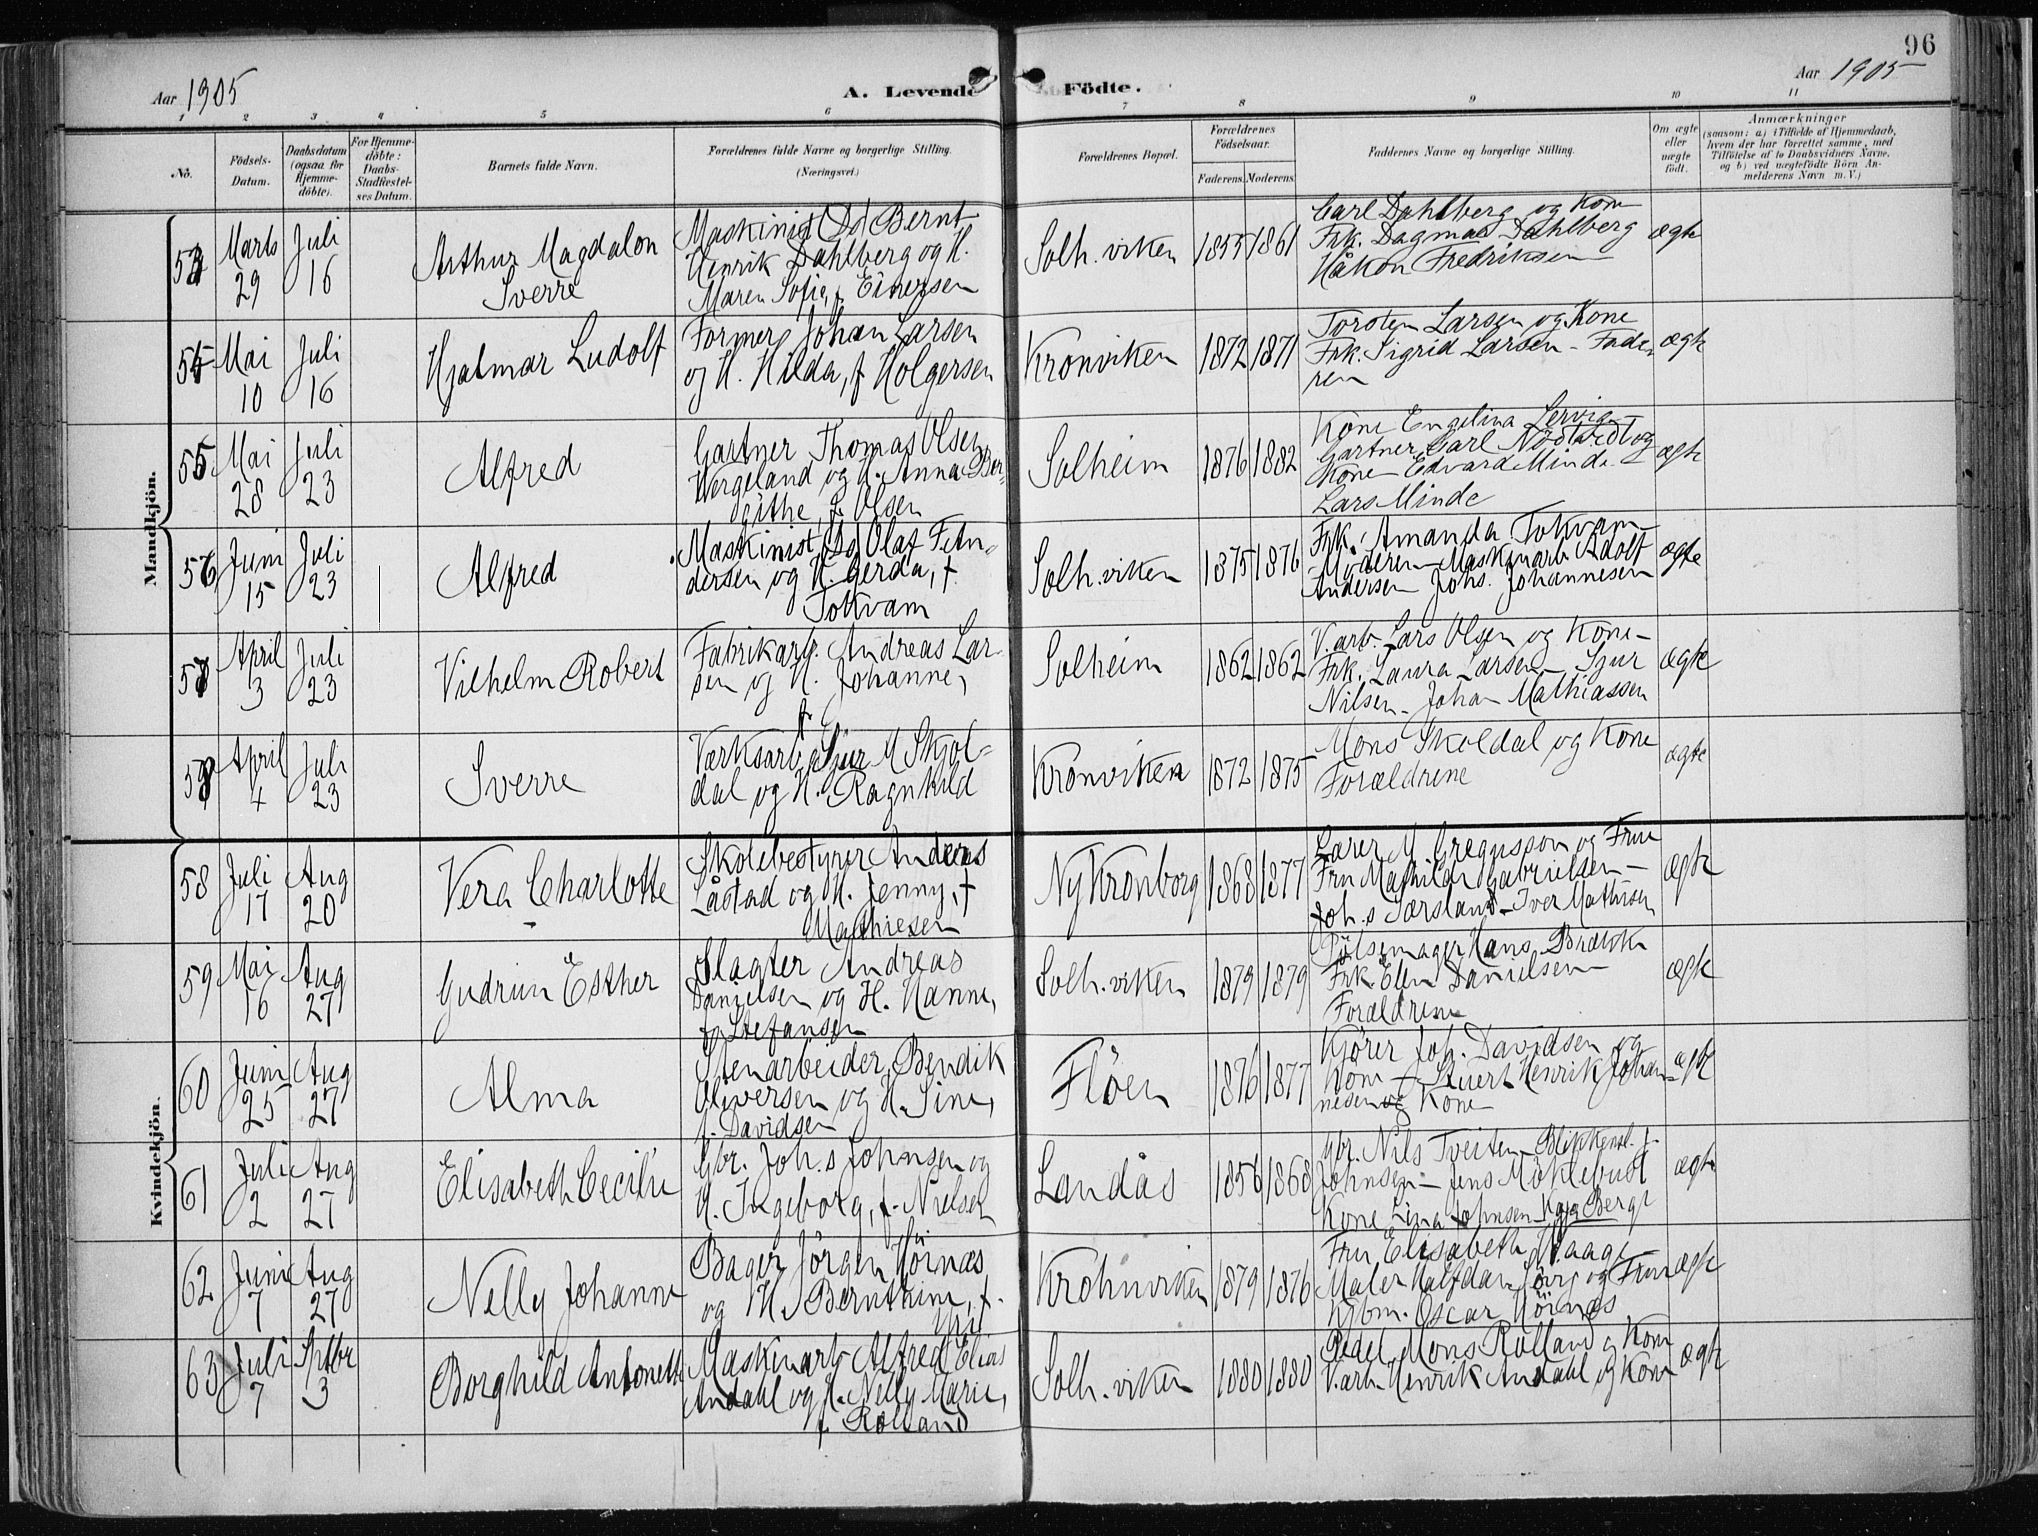 96
Aar 1905
A. Levende Födte.
Aar 1905
1 2 3 4 5 6 7 8 9 10 11
No.
Födsels-
Datum.
Daabsdatum
(ogsaa for
Hjemme-
döbte).
For Hjemme-
döbte:
Daabs-
Stadfæstel-
ses Datum.
Barnets fulde Navn.
Forældrenes fulde Navne og borgerlige Stilling.
(Næringsvei.)
Forældrenes Bopæl.
Forældrenes
Födselsaar.
Faderens. Moderens.
Faddernes Navne og borgerlige Stilling.
Om ægte
eller
uægte
födt.
Anmærkninger
(saasom: a) i Tilfælde af Hjemmedaab,
hvem der har forrettet samme, med
Tilföielse af to Daabsvidners Navne,
og b) ved uægtefödte Börn An-
melderens Navn m. V.)
Mandkjön.
Marts
29
Juli
16
Arthur Magdalon
Sverre
Maskinist Bernt
Henrik Dahlberg og H.
Maren Sofie, f. Einersen
Solh.viken
1855 1861
Carl Dahlberg og Kone
Frk. Dagmar Dahlberg
Håkon Fredriksen
ægte
Mai
10
Juli
16
Hjalmar Ludolf
Former Johan Larsen
og H. Hilda, f Holgersen
Kronviken
1872 1871
Torsten Larsen og Kone
Frk. Sigrid Larsen - Fade-
ren
ægte
55
Mai
28
Juli
23
Alfred
Gartner Thomas Olsen
Hergeland og H. Anna Ber-
githe, f. Olsen
Solheim
1876 1882
Kone Engelina Lervig
Gartner Carl Nödtvedt og
Kone Edvard Minde
Lars Minde
ægte
56
Juni
15
Juli
23
Alfred
Maskinist Olaf F. An-
dersen og H. Gerda, f.
Tokvam
Solh.viken
1875 1876
Frk. Amanda Tokvam
Moderen - Maskinarb. Adolf
Andersen Johs. Johannesen
ægte
57
April
3
Juli
23
Vilhelm Robert
Fabrikarb. Andreas Lar-
sen og H. Johanne,
f.
Solheim
1862 1862
V.arb. Lars Olsen og Kone -
Frk. Laura Larsen - Sjur
Nilsen - Johan Mathiassen
ægte
April
4
Juli
23
Sverre
Værksarb. Sjur M Skjol-
dal og H. Ragnhild
Kronviken
1872 1875
Mons Skoldal og Kone
Forældrene
ægte
Kvindekjön.
58
Juli
17
Aug
20
Vera Charlotte
Skolebestyrer Anders
Låstad og H. Jenny, f
Mathiesen
Ny Kronborg
1868 1877
Lærer M Gregusson og Frue
Fru Mathilde Gabrielsen -
Joh.s Særsland - Iver Mathisen
ægte
59
Mai
16
Aug
27
Gudrun Esther
Slagter Andreas
Danielsen og H. Hanne,
f. Stefansen
Solh.viken
1879 1879
Pölsemager Hans Brækk
Frk. Ellen Danielsen -
Forældrene
ægte
60
Juni
25
Aug
27
Alma
Stenarbeider Bendik
Oliversen og H. Sine,
f. Davidsen
Flöen
1876 1877
Kjörer Joh. Davidsen og
Kone - Stuert Henrik Johan-
nesen og Kone
ægte
61
Juli
2
Aug
27
Elisabeth Cecilie
Gbr. Joh.s Johnsen og
H. Ingeborg, f. Nielsen
Landås
1856 1868
Gbr. Nils Tveiten - Blikkensl. J.
Johnsen - Jens Möklebust
Kone Lina Johnsen Kaja Berge
ægte
62
Juni
7
Aug
27
Nelly Johanne
Bager Jörgen Hörnæs
og H. Bernthine, f.
Krohnviken
1879 1876
Fru Elisabeth Haage
Maler Halfdan og Frue
Kjbm. Oscar Hörnæs
ægte
63
Juli
7
Sptbr
3
Borghild Antonette
Maskinarb Alfred Elias
Andahl og H. Nelly Marie,
f. Rolland
Solh.viken
1880 1880
Pedel Mons Rolland og Kone
V.arb. Henrik Andahl og Kone
ægte